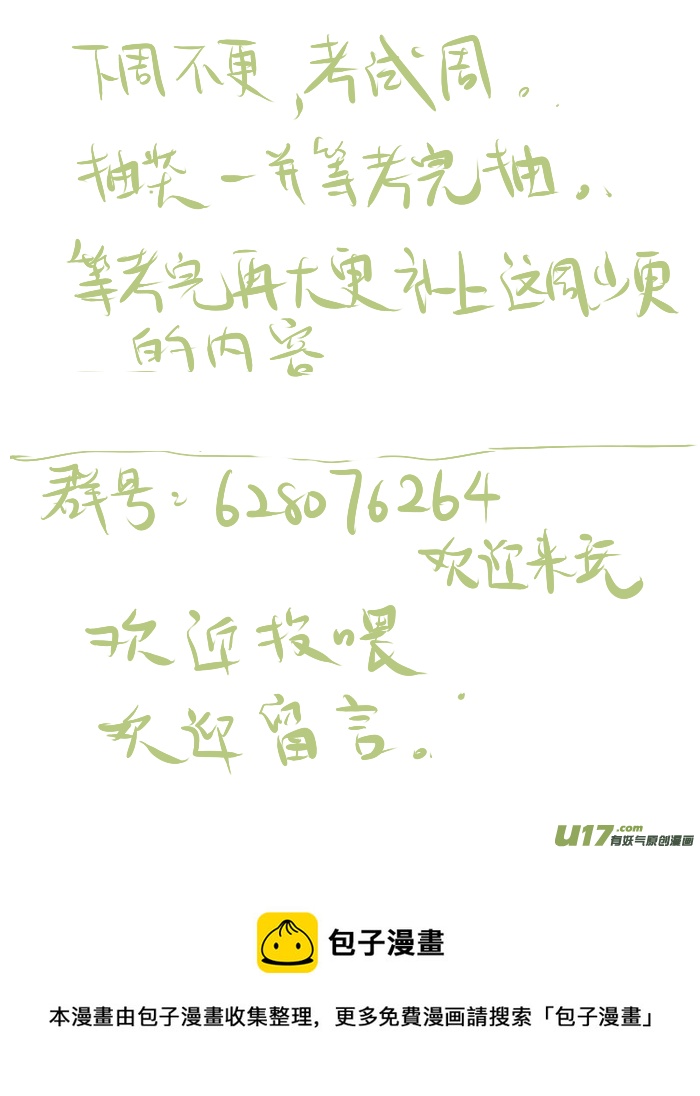 下周不更,考试周。
抽奖一并等考完抽。
等考完再大更补上这周少更
的内容
群号:628076264
欢迎来玩
欢迎投喂
欢迎留言。
U17.com
有妖气原创漫画
包子漫畫
本漫畫由包子漫畫收集整理,更多免費漫画請搜索「包子漫畫」